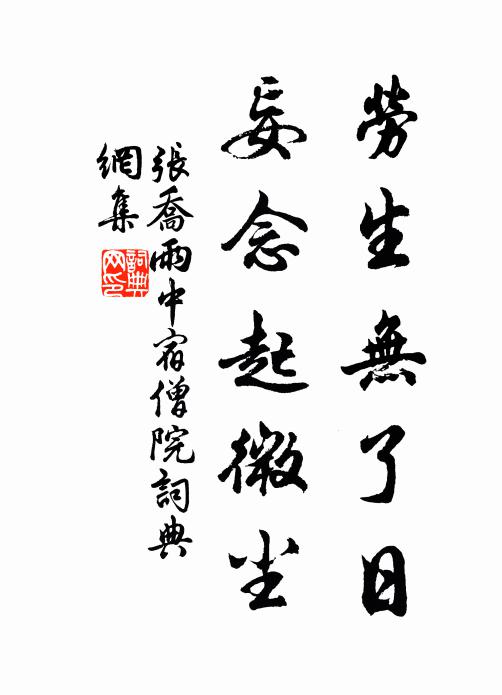 勞生無了日
妄念起微尘
張喬雨中宿僧院詞典
網集
詞典
网印